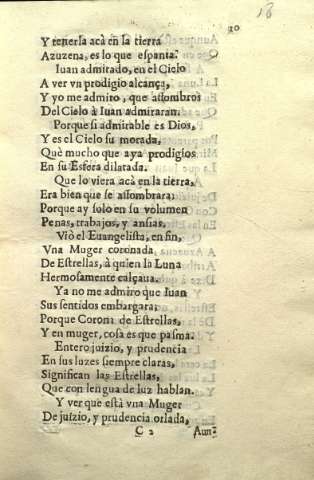 18
20
Y tenerla acà en la tierra
Azuzena, es lo que espanta?
Iuan admirado, en el Cielo
A ver vn prodigio alcança,
Y yo me admiro, que assombros
Del Cielo à Iuan admiraran.
Porque si admirable es Dios,
Y es el Cielo su morada,
Què mucho que aya prodigios
En su Esfera dilatada.
Que lo viera acà en la tierra,
Era bien que se assombrara:
Porque ay solo en su volumen
Penas, trabajos, y ansias.
Viò el Euangelista, en fin,
Vna Muger coronada
De Estrellas, à quien la Luna
Hermosamente calçaua.
Ya no me admiro que Iuan
Sus sentidos embargara:
Porque Corona de Estrellas,
Y en muger, cosa es que pasma.
Entero juizio, y prudencia
En sus luzes siempre claras,
Significan las Estrellas,
Que con lengua de luz hablan.
Y ver que està vna Muger
De juizio, y prudencia orlada,
C 2 Aun-